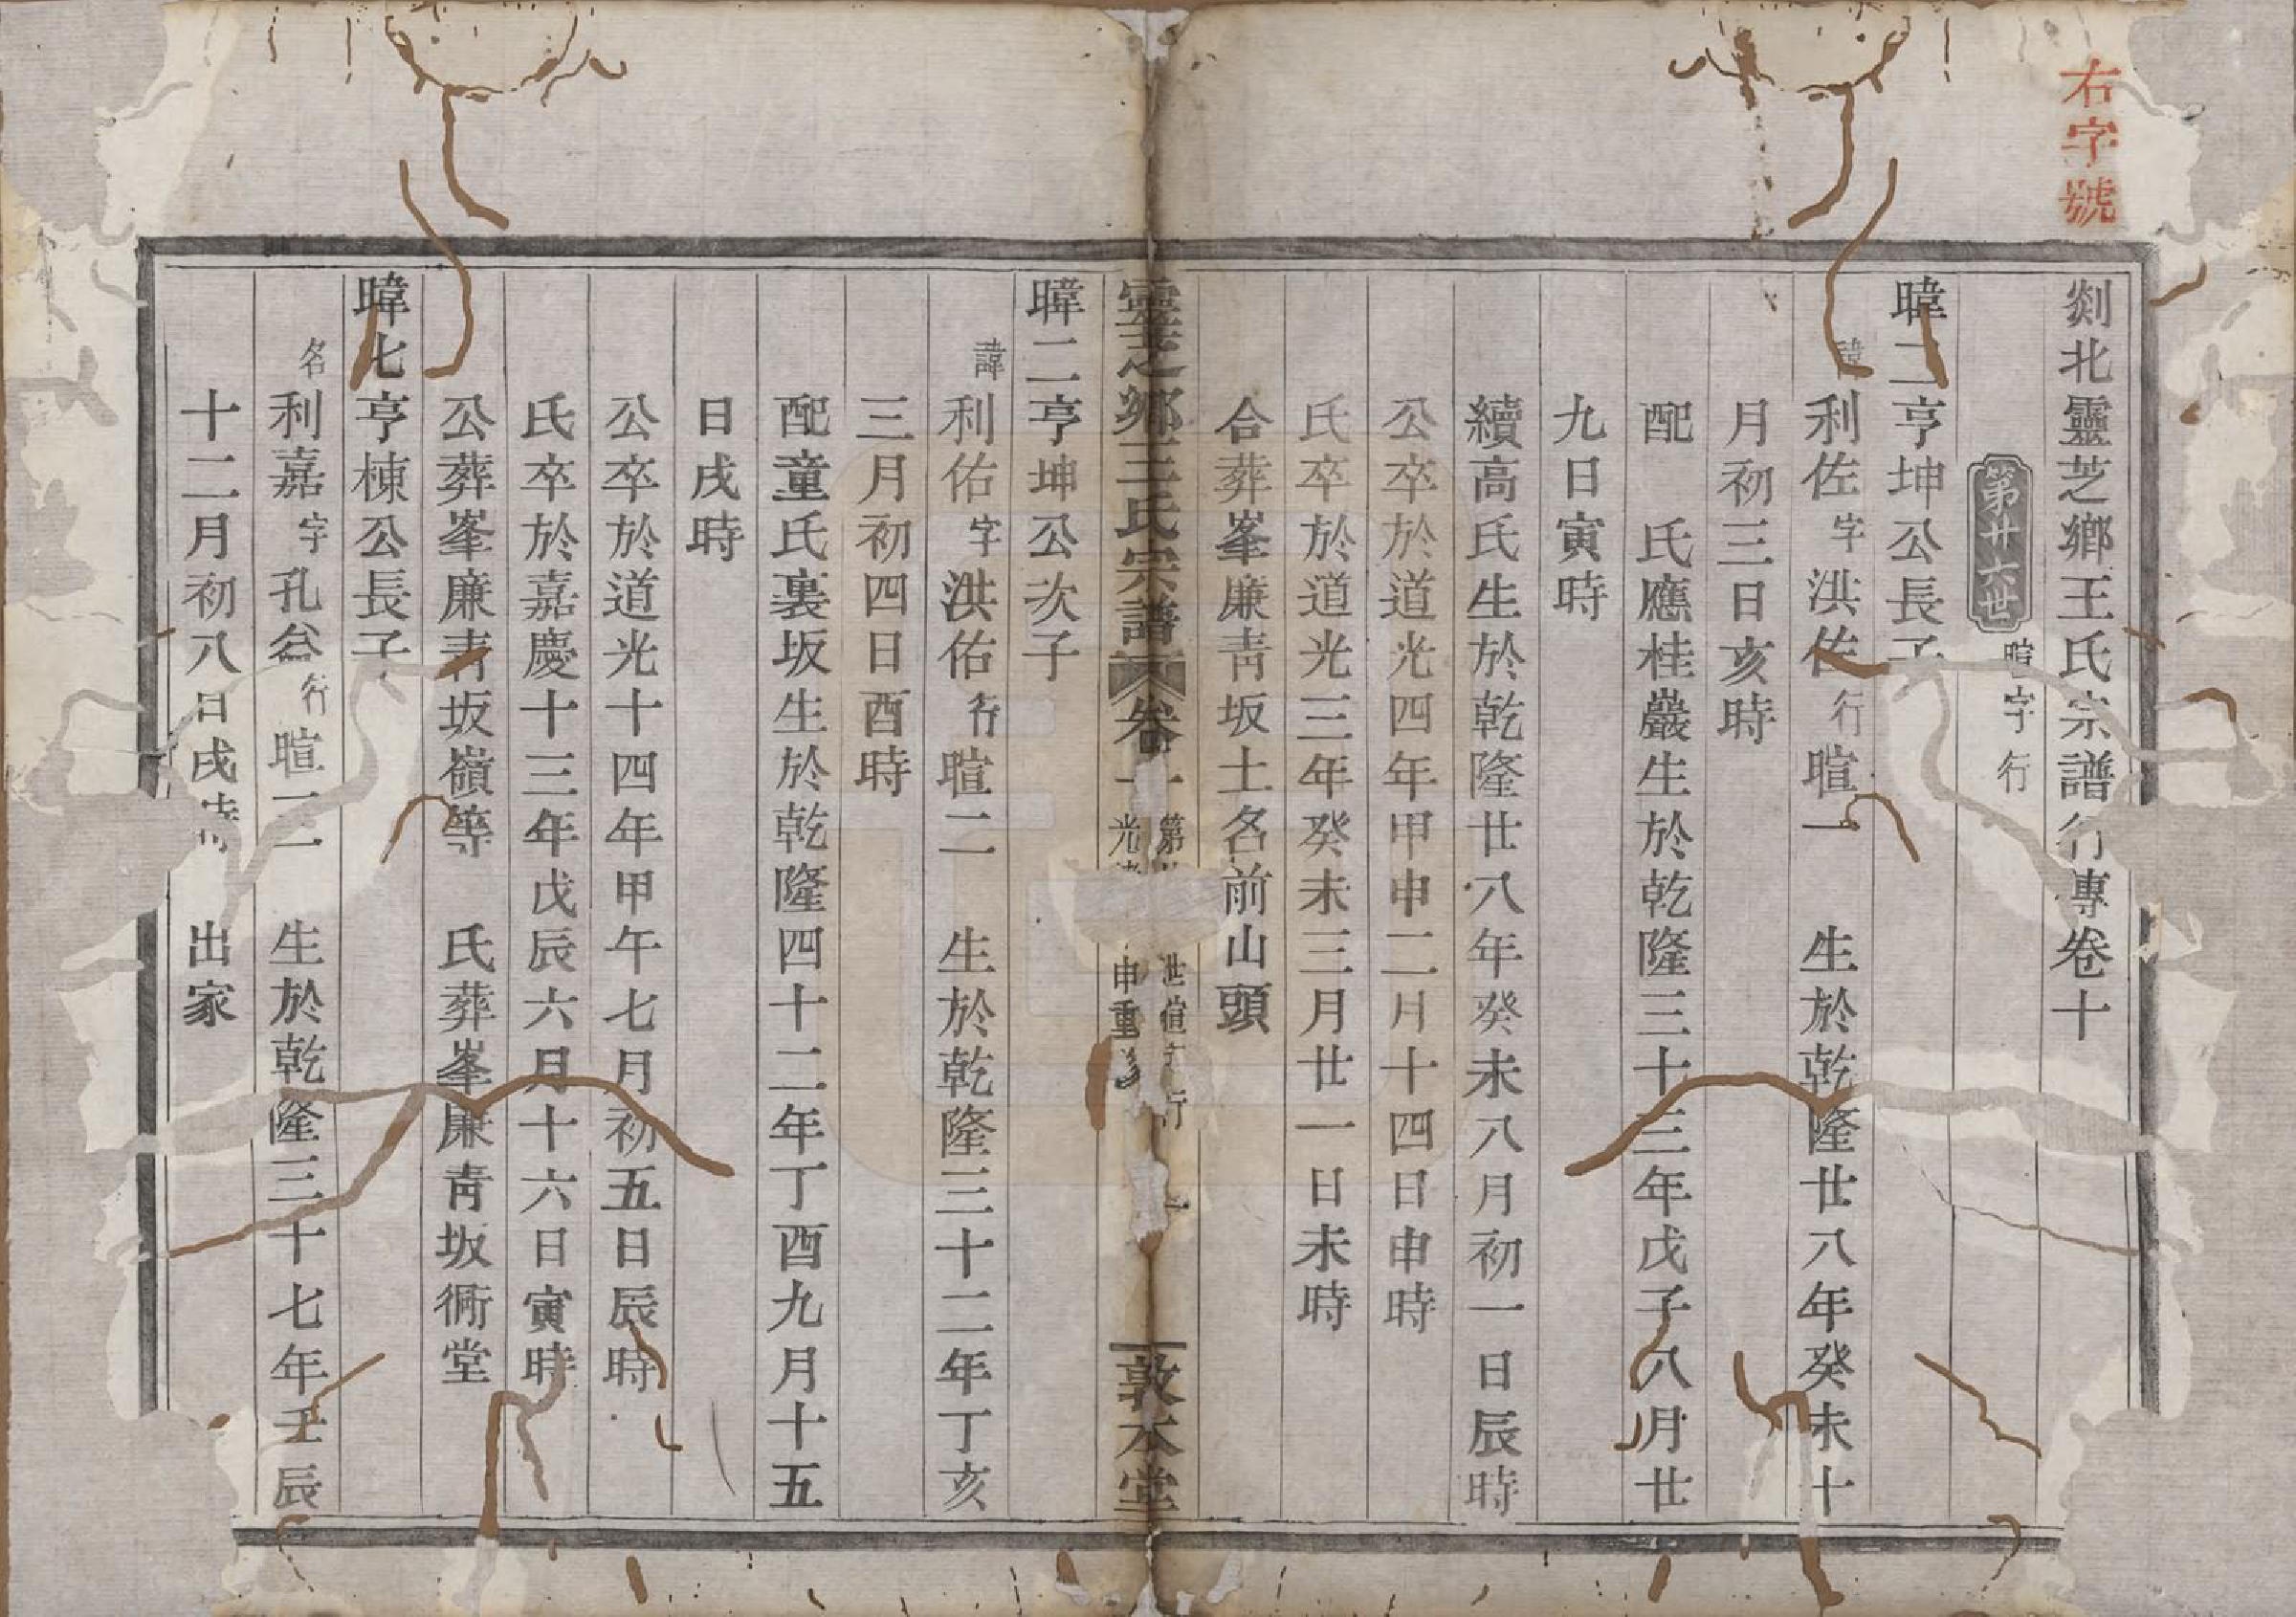 右字號
剡北靈芝鄉王氏宗譜行專卷十
第廿六世
暄字行
暐二亨坤公長子
諱利佐字洪佐行暄一 生於乾隆廿八年癸未十
月初三日亥時
配 氏應桂巖生於乾隆三十三年戊子八月廿
九日寅時
續高氏生於乾隆廿八年癸未八月初一日辰時
公卒於道光四年甲申二月十四日申時
氏卒於道光三年癸未三月廿一日未時
合葬峯廉靑坂土名前山頭
靈芝鄉王氏宗譜 卷十
第 世 行
光 申重
敦本堂
暐二亨坤公次子
諱利佑字洪佑行暄二 生於乾隆三十二年丁亥
三月初四日酉時
配童氏裏坂生於乾隆四十二年丁酉九月十五
日戌時
公卒於道光十四年甲午七月初五日辰時
氏卒於嘉慶十三年戊辰六月十六日寅時
公葬峯廉靑坂嶺等 氏葬峯廉靑坂衕堂
暐七亨棟公長子
名利嘉字孔 行暄三 生於乾隆三十七年壬辰
十二月初八日戌時 出家